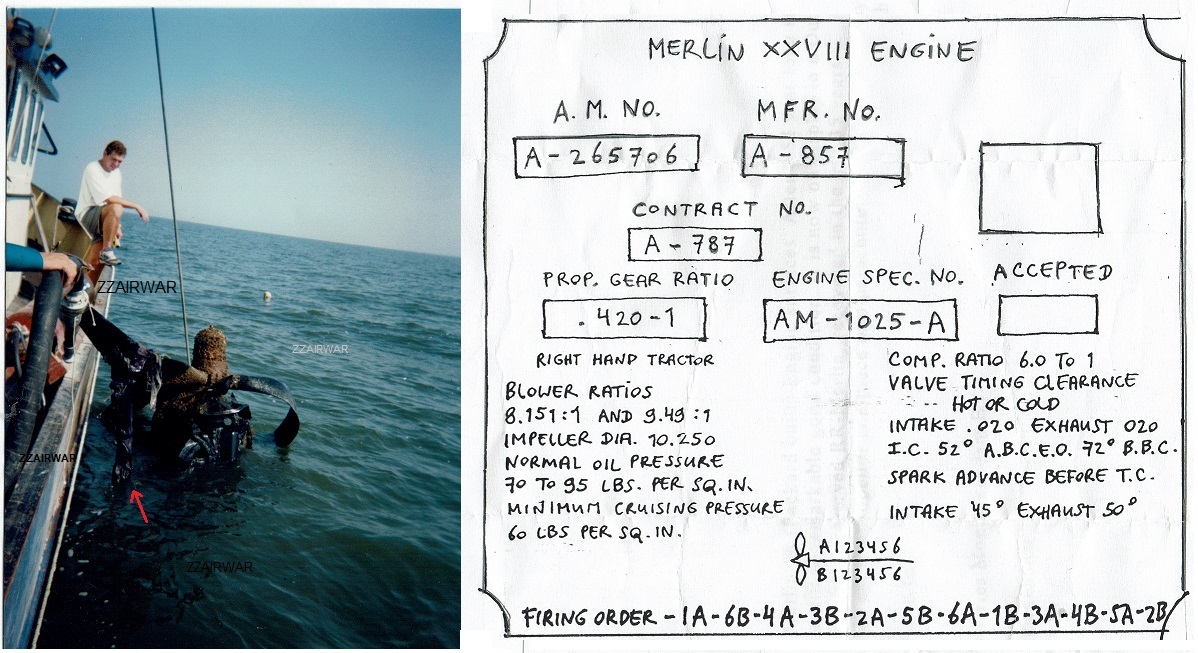 ZZAIRWAR
ZZAIRWAR
ZZAIRWAR
ZZAIRWAR
MERLIN XXVIII ENGINE
A.M. NO. MFR. NO.
A-265706 A-857
CONTRACT NO.
A-787
PROP. GEAR RATIO ENGINE SPEC. NO. ACCEPTED
.420-1 AM-1025-A
RIGHT HAND TRACTOR
BLOWER RATIOS
8.151:1 AND 9.49:1
IMPELLER DIA. 10.250
NORMAL OIL PRESSURE
70 TO 95 LBS. PER SQ.IN.
MINIMUM CRUISING PRESSURE
60 LBS PER SQ.IN.
COMP. RATIO 6.0 TO 1
VALVE TIMING CLEARANCE
HOT OR COLD
INTAKE .020 EXHAUST 020
I.C. 52° A.B.C.E.O. 72° B.B.C.
SPARK ADVANCE BEFORE T.C.
INTAKE 45° EXHAUST 50°
A123456
B123456
FIRING ORDER - 1A-6B-4A-3B-2A-5B-6A-1B-3A-4B-5A-2B